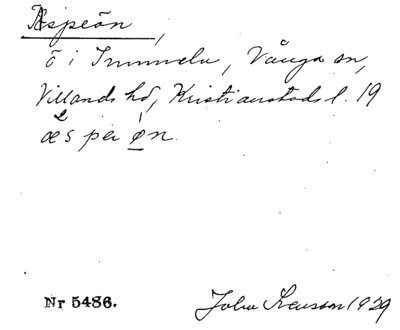 Äspeön,
ö i Immeln, Vånga sn,
Villands hd, Kristianstads l. 19
æs per øn
Nr 5486. John 1929